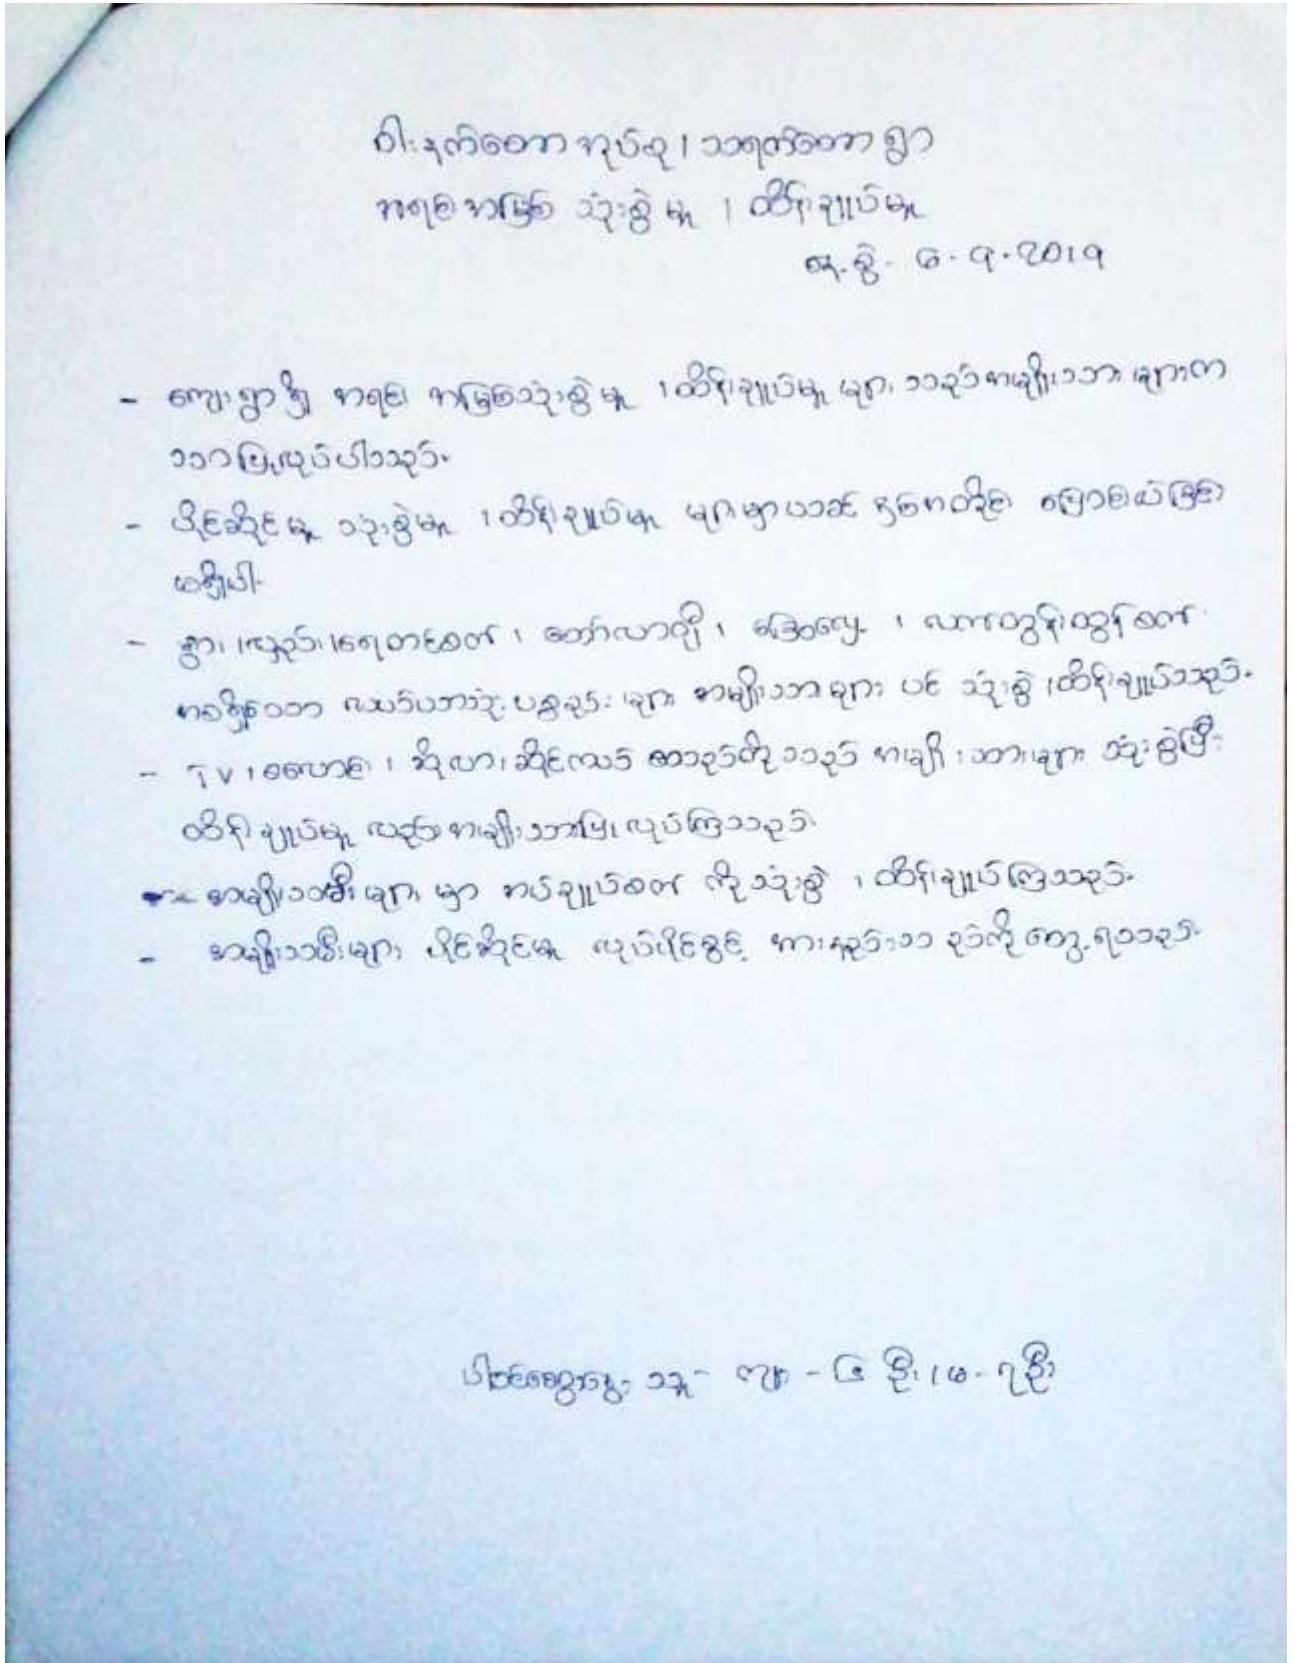 ဝါးနက်တော အုပ်စု၊ သရက်တော ရွာ
အရင်းအမြစ် သုံးစွဲမှု ၊ ထိန်းချုပ်မှု
နေ့စွဲ - ၆.၄.2019
- ကျေးရွာရှိ အရင်းအမြစ်သုံးစွဲမှု ၊ ထိန်းချုပ်မှု များ သည် အမျိုးသား များက
သာပြုလုပ်ပါသည်။
- ပိုင်ဆိုင်မှု သုံးစွဲမှု ၊ ထိန်းချုပ်မှု များမှာယခင် နှစ်အတိုင်း ပြောင်းလဲခြင်း
မရှိပါ။
- နွား၊ လှည်း၊ ရေတင်စက် ၊ တော်လာဂျီ ၊ လက်တွန်းထွန်စက်
အစရှိသော လယ်ယာသုံး ပစ္စည်း များ အမျိုးသားများ ပင် သုံးစွဲ ၊ထိန်းချုပ်သည်။
- TV ၊ စလောင်း ၊ ဆိုလာ၊ ဆိုင်ကယ် စသည်တို့သည် အမျိုးသားများ သုံးစွဲပြီး
ထိန်းချုပ်မှု လည်းအမျိုးသားပြုလုပ်ကြသည်။
- အမျိုးသမီးများ မှာ အပ်ချုပ်စက် ကို သုံးစွဲ ၊ ထိန်းချုပ်ကြသည်။
- အမျိုးသမီးများ ပိုင်ဆိုင်မှု လုပ်ပိုင်ခွင့် အားနည်းသည်ကို တွေ့ရသည်။
ပါဝင်ဆွေးနွေးသူ - ကျား - ၆ ဦး ၊ မ - ၇ ဦး